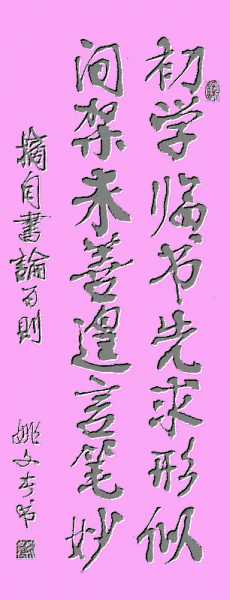 初学临书先求形似
间架未善遑言笔妙
摘自書論百則
姚文李书